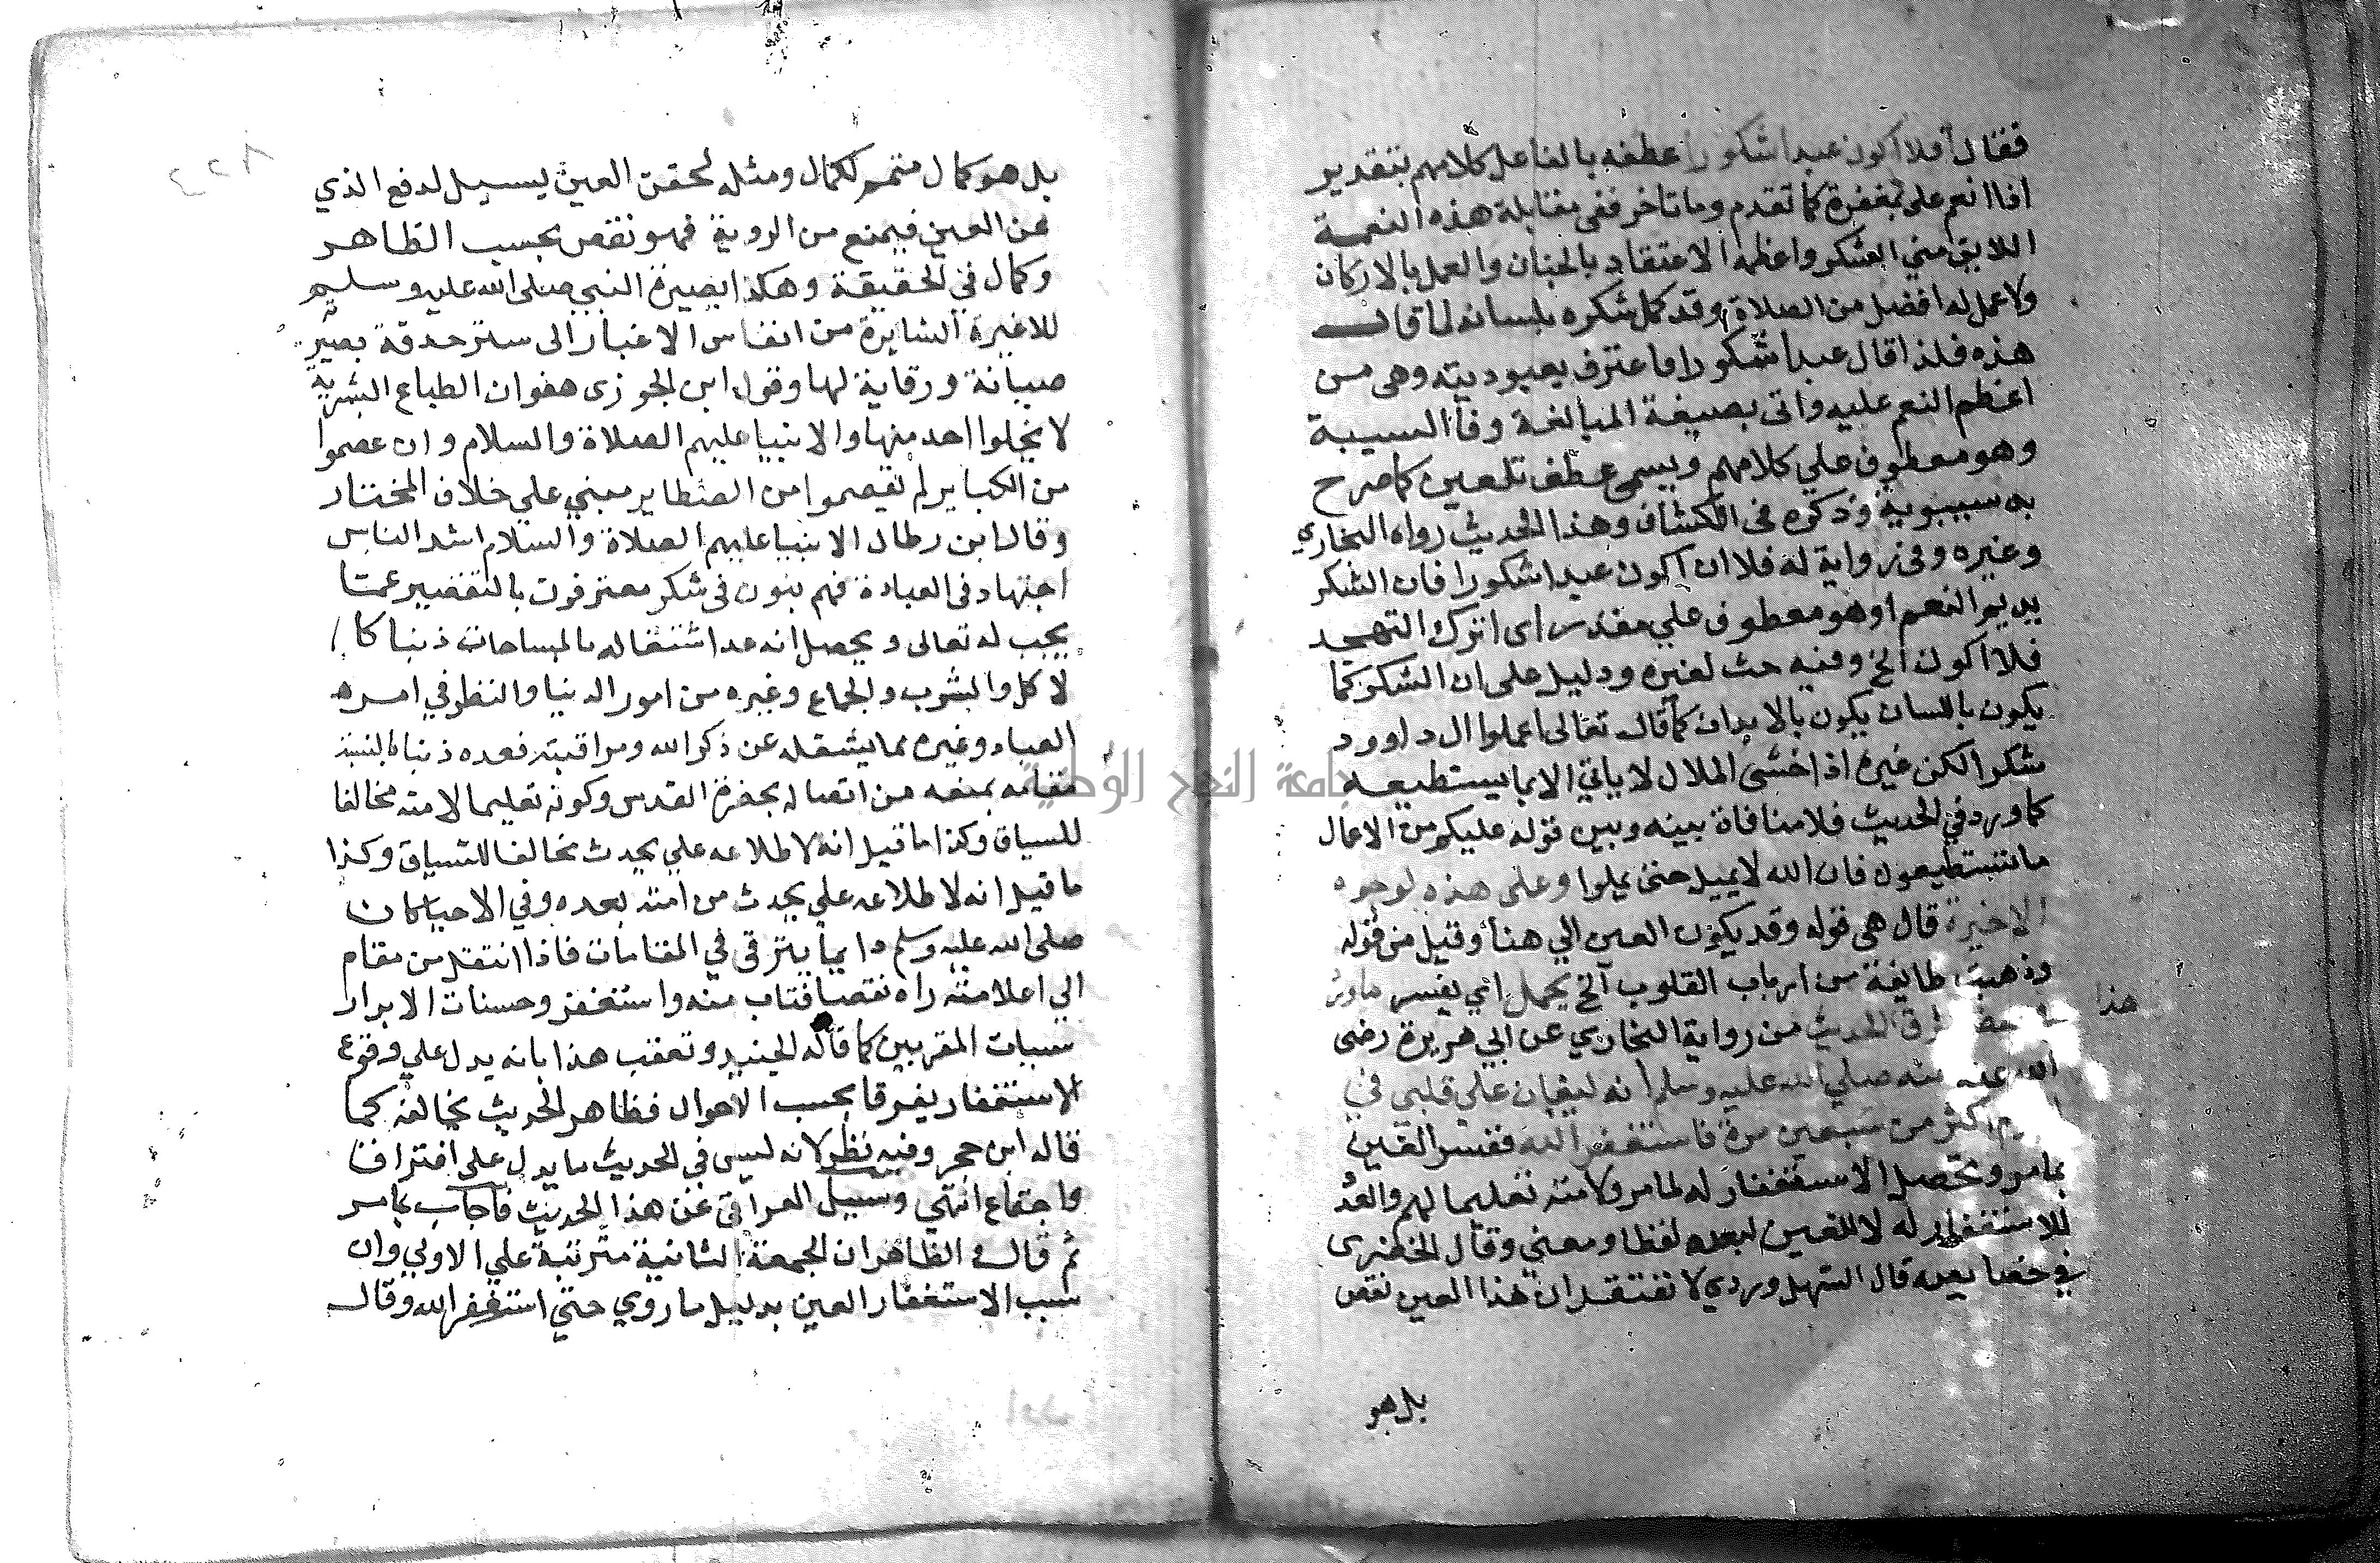 فقال أفلا اكون عبدا شكورا عطفه بالفا على كلامهم بتقدير
اذا انعم على بمغفرة كما تقدم وما تاخر ففى مقابلة هذه النعمة
اللايق منى الشكر واعظمه الاعتقاد بالجنان والعمل بالاركان
ولا عمل له افضل من الصلاة وقد كمل شكره بلسانه لما قال
هذه فلذا قال عبدا شكورا فاعترف بعبوديته وهى من
اعظم النعم عليه واتى بصيغة المبالغة وفا السببية
وهو معطوف علي كلامهم ويسمى عطف تلعين كما صرح
به سيبويه وذكره فى الكشاف وهذا الحديث رواه البخاري
وغيره وفى رواية له فلا ان اكون عبدا شكورا فان الشكر
يديم النعم او هو معطوف علي مقدر اى اترك التهجد
فلا اكون الخ وفيه حث لغيره ودليل على ان الشكر كما
يكون باللسان يكون بالابدان كما قال تعالى اعملوا ال داوود
شكرا لكن غيره اذا خشى الملال لا ياتي الا بما يستطيعه
كما ورد في الحديث فلا منافاة بينه وبين قوله عليكم من الاعمال
ما تستطيعون فان الله لا يميل حتى يملوا وعلى هذه لوجوه
الاخيرة قال هي قوله وقد يكون العين الي هنا وقيل من قوله
وذهبت طايفة من ارباب القلوب الخ يحمل اي يفسر
هذا
الحديث من رواية البخاري عن ابي هريرة رضى
الله عنه صلي الله عليه وسلم انه ليغان علي قلبي في
اكثر من سبعين مرة فاستغفر الله ففسر الغين
بما مر ويحصل الاستغفار له لما مر ولامته تعليما لهم
للاستغفار له لا للغين لبعده لفظا ومعنى وقال الخضري
في خصايصه قال السهل وردي لا تعتقد ان هذا الغين نقص
بل هو
بل هو كمال متمم لكمال ومثله لحفن العين ليسيل لدفع الذي
عن العين فيمنع من الروية فهو نقص بحسب الظاهر
وكمال في الحقيقة وهكذا بصيرة النبي صلى الله عليه وسلم
للاغيرة الشايرة من انفاس الاغيار الى ستر حدقة بصير
صيانة ورقاية لها وقول ابن الجوزى هفوان الطباع البشرية
لا يخلوا احد منها والانبيا عليهم الصلاة والسلام وان عصموا
من الكباير لم تعصموا من الصغاير مبني علي خلاف المختار
وقال ابن رطال الانبيا عليهم الصلاة والسلام اشد الناس
اجتهاد فى العبادة فهم بنون فى شكر معترفون بالتقصير عمتا
يجب له تعالى ويحصل انه عد اشتغاله بالمباحات ذنبا كا
لاكل والشرب والجماع وغيره من امور الدنيا والنظر في امره
العباد وغيره مما يشغله عن ذكر الله ومراقبته فعده ذنبا بالنسبة
مقامه بمنعه من اتصاله بحضرة القدس وكونه تعليما لامته مخالفا
للسياق وكذا ما قيل انه لاطلاعه علي يحدث مخالفا للسياق وكذا
ما قيل انه لاطلاعه علي يحدث من امته بعده وفي الاحيا كان
صلى الله عليه وسلم دايما يترقى في المقامات فاذا انتقل من مقام
الي اعلا منه راه نقصا فتاب منه واستغفر وحسنات الابرار
سيئات المقربين كما قاله الجنيد وتعقب هذا بانه يدل علي وقوع
الاستغفار يفرقا بحسب الاحوال فظاهر الحديث يخالفه كما
قاله ابن حجر وفيه نظر لانه ليس في الحديث ما يدل علي افتراقا
واجتماع انتهي وسييل العراقى عن هذا الحديث فاجاب بما مر
ثم قال والظاهر ان الجمعة الثانية مترتبة علي الاولي وان
سبب الاستغفار العين بدليل ما روي حتي استغفر الله وقال
جامعة النجاح الوطنية